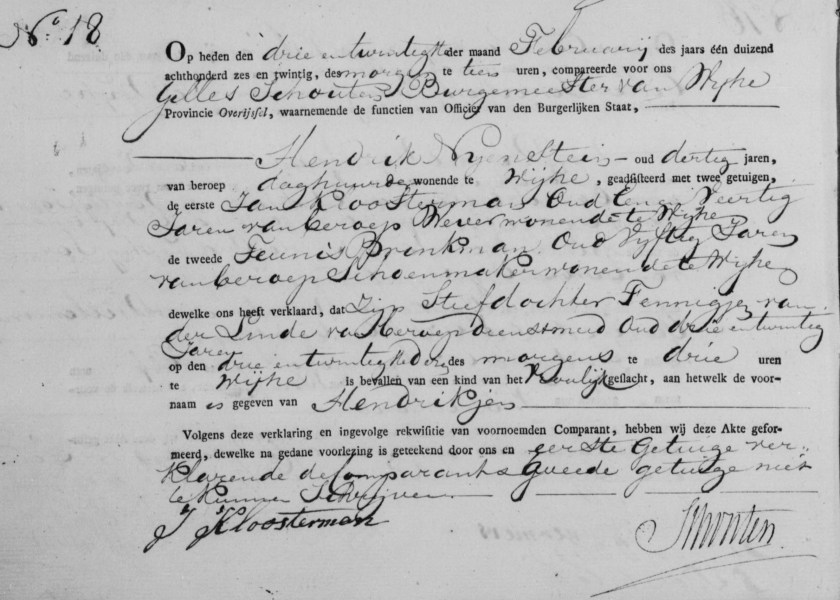 N.o 18
Op heden den drie en twintigste der maand Februarij des jaars één duizend
achthonderd zes en twintig, des morgens te tien uren, compareerde voor ons
Gilles Schouten Burgemeester van Wijhe
Provincie Overijssel, waarnemende de functien van Officier van den Burgerlijken Staat,
Hendrik Nijenstein oud dertig jaren,
van beroep daghuurder wonende te Wijhe, geadsisteerd met twee getuigen,
de eerste Jan Kloosterman Oud Een en Veertig
Jaren van beroep Wever wonende te Wijhe
de tweede Teunis Brinkman Oud Vijftig Jaren
van beroep Schoenmaker wonende te Wijhe
dewelke ons heeft verklaard, dat Zijn Stiefdochter Fennigje van
der Linde van beroep dienstmeid Oud drie en twintig
Jaren
op den drie en twintigste dezer des morgens te drie uren
te Wijhe is bevallen van een kind van het Vrouwlijk geslacht, aan hetwelk de voor-
naam is gegeven van Hendrikjen
Volgens deze verklaring en ingevolge rekwisitie van voornoemden Comparant, hebben wij deze Akte gefor-
meerd, dewelke na gedane voorlezing is geteekend door ons en eerste Getuige ver-
klarende de Comparant & tweede getuige niet
te kunnen Schrijven
J Kloosterman
Schouten